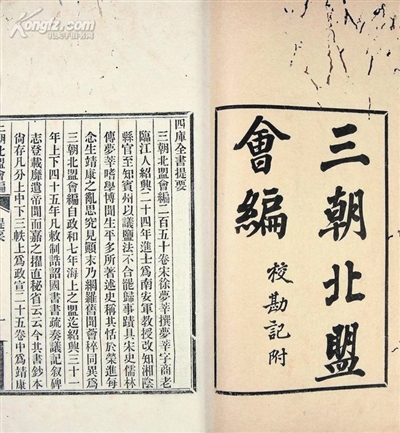 Kongfz.com
三朝北盟
會編
校勘記附
四庫全書提要
三朝北盟會編二百五十卷宋徐夢莘撰夢莘字商老
臨江人紹興二十四年進士爲南安軍教授改知湘陰
縣官至知賓州以議鹽法不合罷歸事蹟具宋史儒林
傳夢莘嗜學博聞生平多所著述史稱其恬於榮進每
念生靖康之亂思究見顛末乃網羅舊聞會稡同異爲
三朝北盟會編自政和七年海上之盟迄紹興三十一
年上下四十五年凡敕制誥詔國書書疏奏議記叙碑
志登載靡遺帝聞而嘉之擢直秘省云云今其書鈔本
尚存凡分上中下三帙上爲政宣二十五卷中爲靖康
三朝北盟會編 提要 一